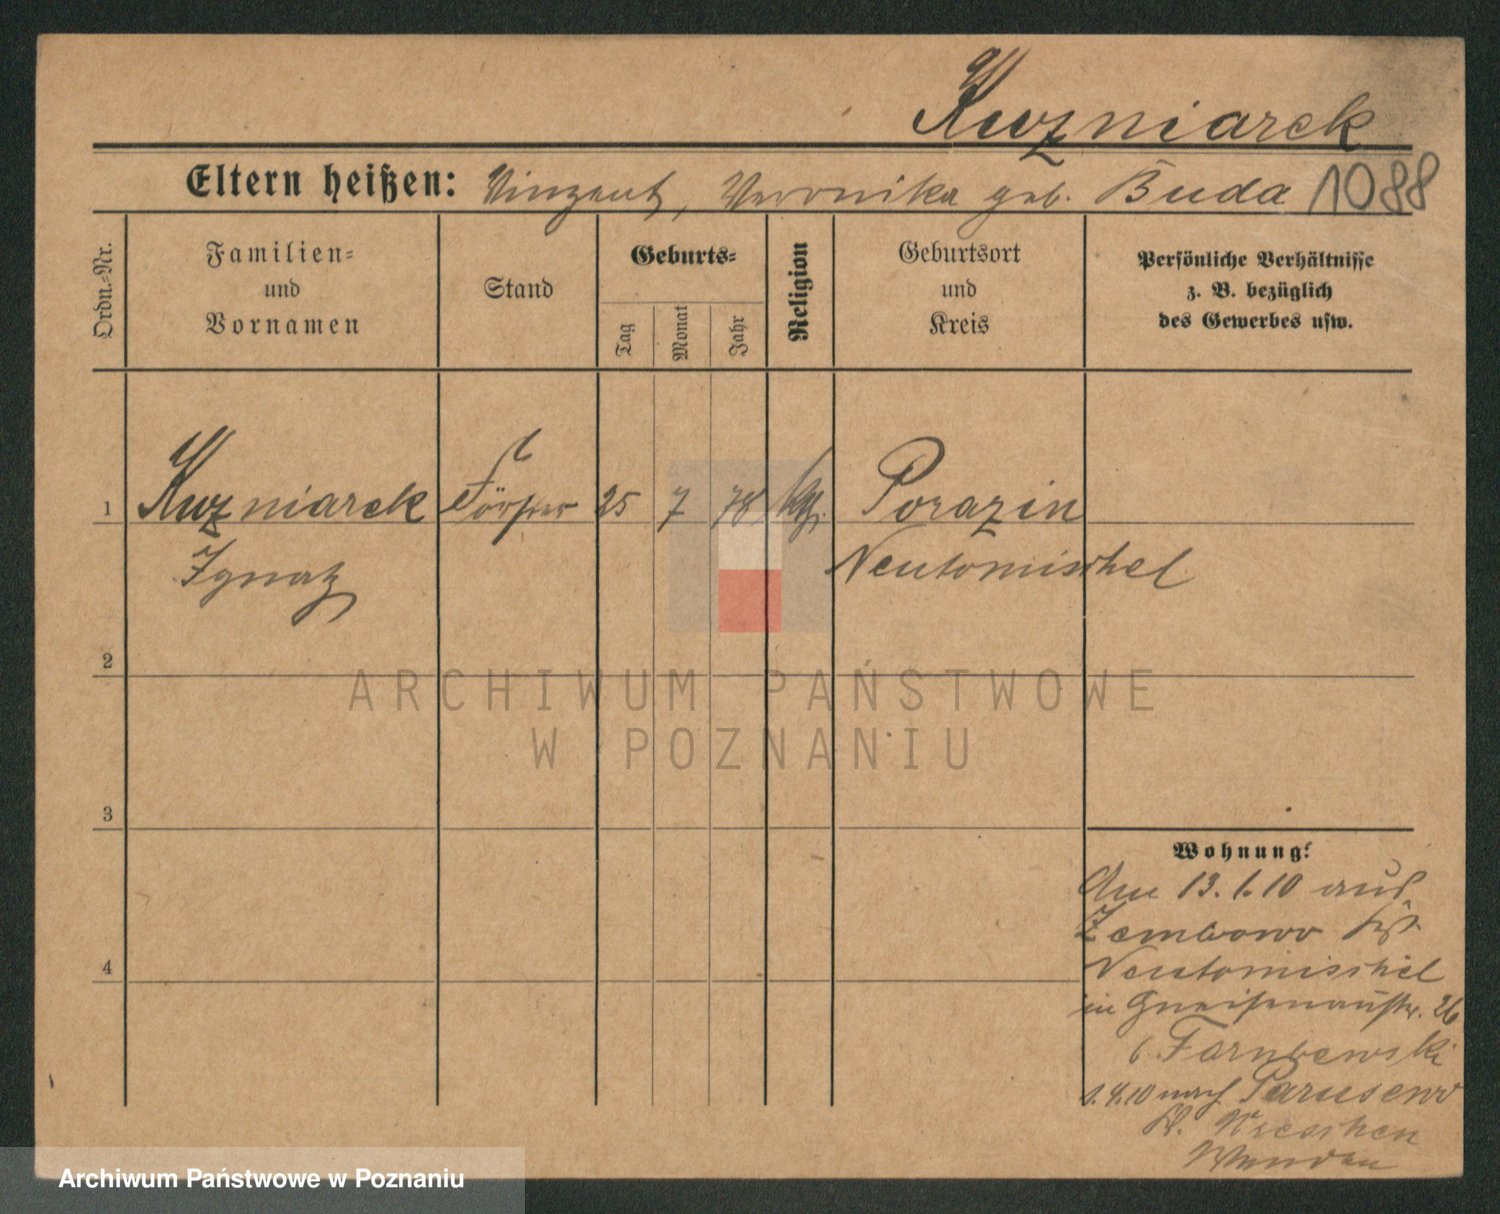 Kuzniarek
Eltern heißen: Vinzent, Veronika geb. Buda 1088
Ordn.-Nr.
Familien- und Vornamen
Stand
Geburts-
Tag
Monat
Jahr
Religion
Geburtsort und Kreis
Persönliche Verhältnisse
z. B. bezüglich
des Gewerbes usw.
1 Kuzniarek 25 7 78 Porazin
Ignatz Neutomischel
2
ARCHIWUM PAŃSTWOWE
W POZNANIU
3
4
Wohnung:
Am 13.1.10 aus
Zembowo
Neutomischel
in Gneisenaustr. 26
b.
1.4.10 nach Parusewo
Kr. Wreschen
Archiwum Państwowe w Poznaniu